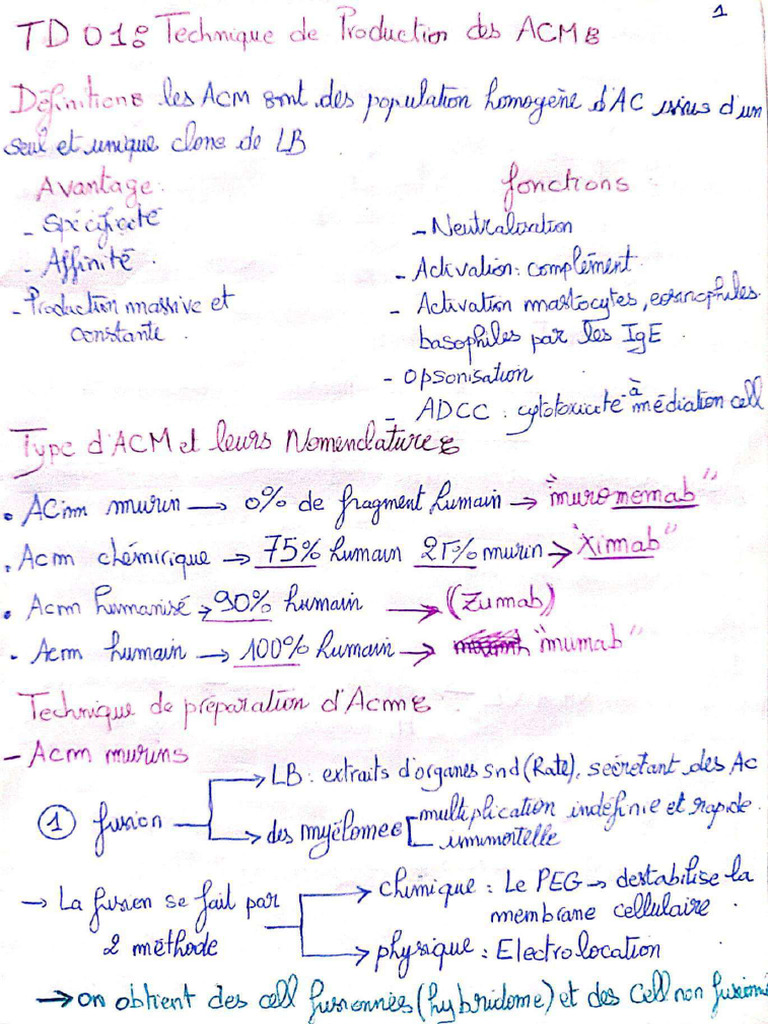 1
TD 01: Technique de Production des ACM:
Définition: les ACM sont des population homogène d'AC issus d'un
seul et unique clone de LB
Avantage:
- Spécificité
- Affinité.
- Production massive et
constante.
fonctions
- Neutralisation
- Activation: complément
- Activation mastocytes, eosinophiles
basophiles par les IgE.
- Opsonisation
- ADCC: cytotoxicité à médiation cell
Type d'ACM et leurs Nomenclature:
• ACm murin → 0% de fragment humain → "muromemab"
• Acm chémirique → 75% humain 25% murin → "Ximab"
• Acm humanisé → 90% humain → (Zumab)
- Acm humain → 100% humain → "mumab"
Technique de préparation d'Acm:
- Acm murins
① fusion
→ LB: extraits d'organes snd (Rate), sécrétant des Ac
→ des myélomes [multiplication indéfinie et rapide.
immortelle
→ La fusion se fait par
2 méthode
→ chimique: Le PEG → destabilise la
membrane cellulaire.
→ physique: Electrolocation
→ on obtient des cell fusionnées (hybridome) et des cell non fusionné